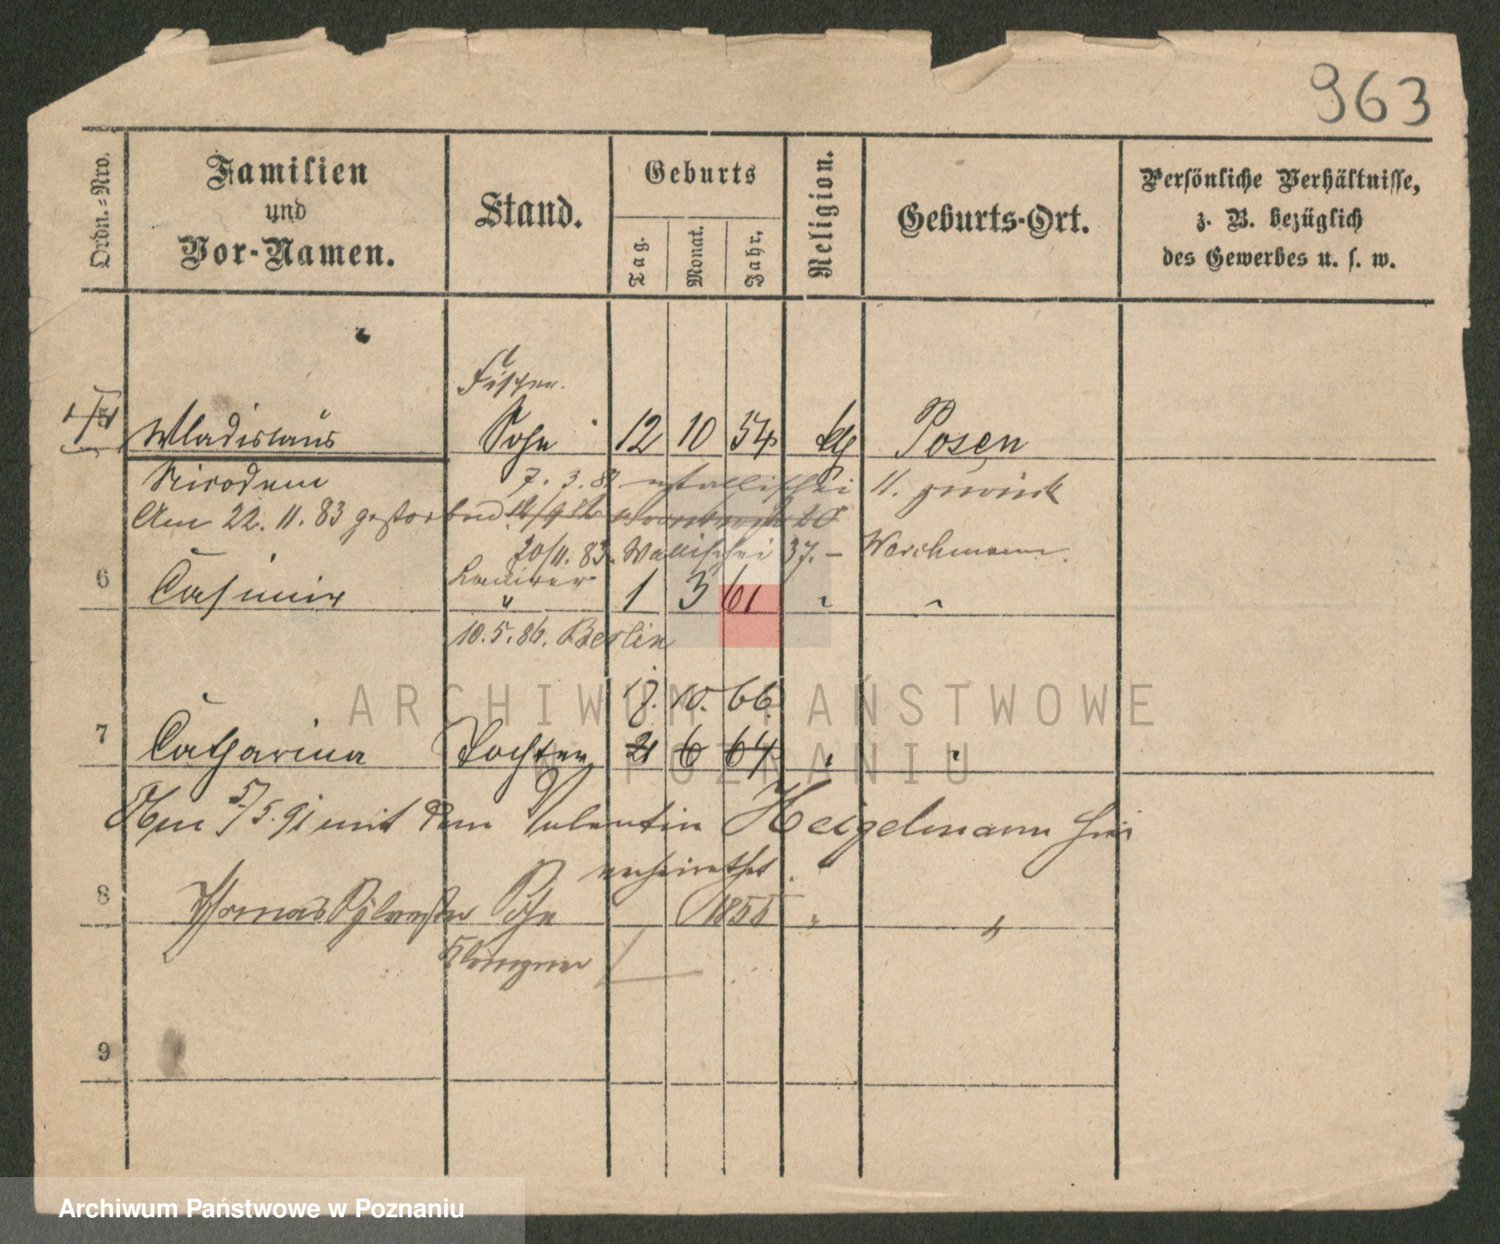 963
Ordn.-Nro.
Familien und Vor-Namen.
Stand.
Geburts
Tag. Monat. Jahr.
Religion.
Geburts-Ort.
Persönliche Verhältnisse, z. B. bezüglich des Gewerbes u. s. w.
5 Wladislaus Sohn 12 10 54 Posen
Nicodem 7. 3. 8 II. zurück
Am 22. 11. 83 gestorben
20/11. 83. Wallischei 37. – Worchmann.
6 Casimir " 1 3 61 " "
10. 5. 86. Berlin
18. 10. 66
7 Catharina Tochter 21 6 64 " "
Am 5/5. 91 mit dem Valentin Heigelmann hier
verheirathet.
8 Thomas Sylvester Sohn 1855 " "
Klempner
9
ARCHIWUM PAŃSTWOWE
W POZNANIU
Archiwum Państwowe w Poznaniu